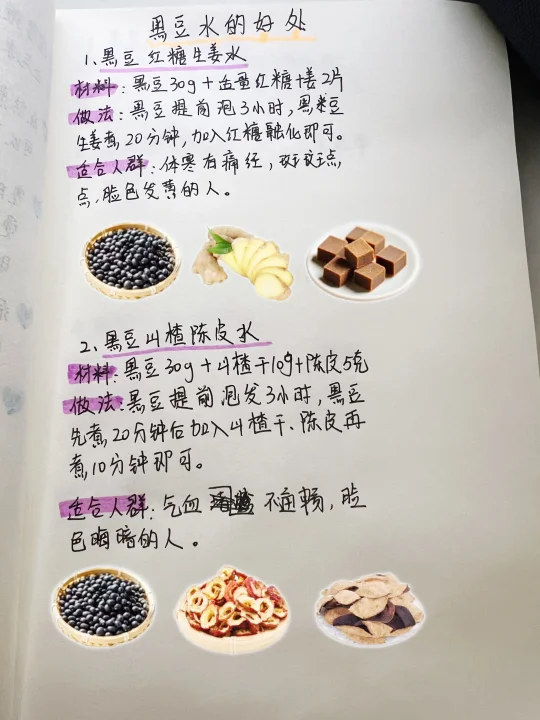 黑豆水的好处
1、黑豆红糖生姜水
材料:黑豆30g+适量红糖+姜2片
做法:黑豆提前泡3小时,黑米豆
生姜煮20分钟,加入红糖融化即可。
适合人群:体寒有痛经,斑斑点
点,脸色发黄的人。
2、黑豆山楂陈皮水
材料:黑豆30g+山楂干10g+陈皮5克
做法:黑豆提前泡发3小时,黑豆
先煮20分钟后加入山楂干、陈皮再
煮10分钟即可。
适合人群:气血不通畅,脸
色晦暗的人。